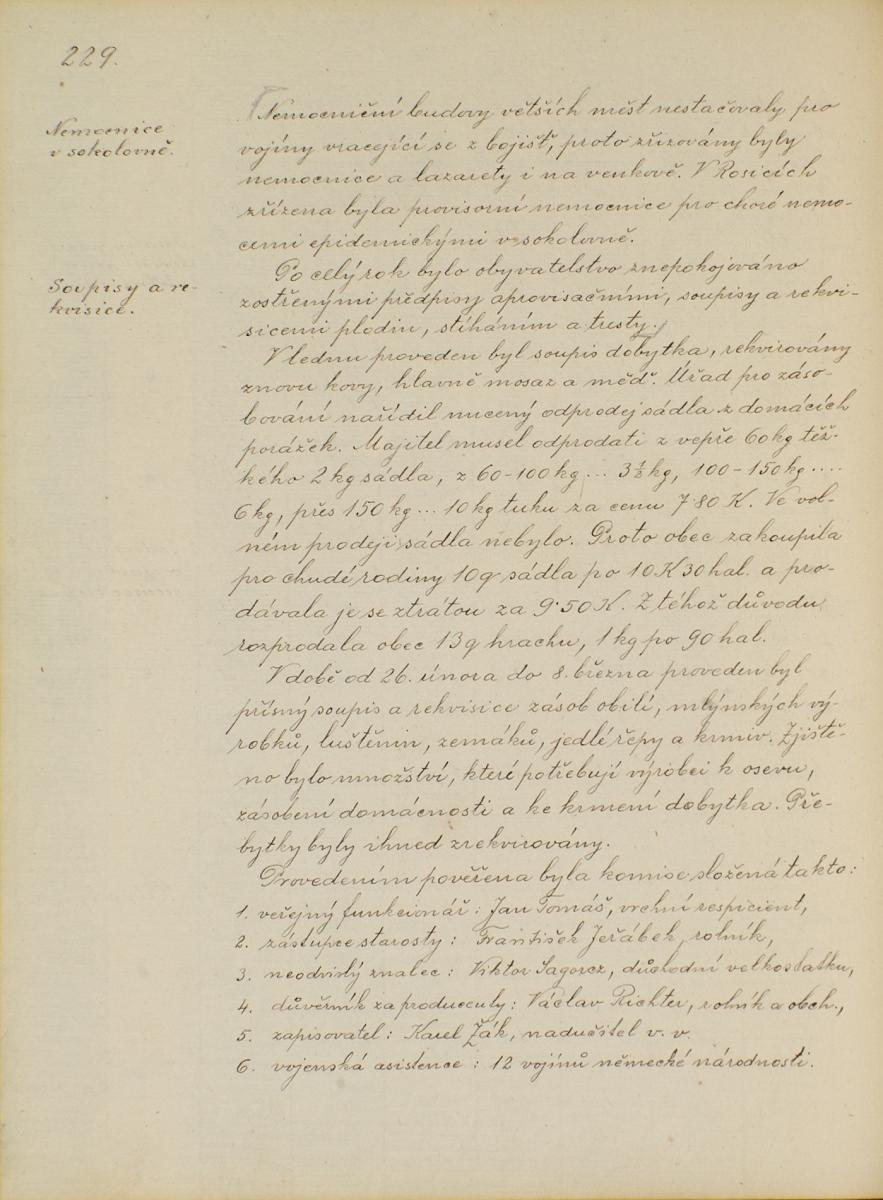 229.
Nemocnice
v sokolovně.
Nemocniční budovy větších měst nestačovaly pro
vojíny vracející se z bojišť, proto zřizovány byly
nemocnice a lazarety i na venkově. V Rosicích
zřízena byla provisorní nemocnice pro choré nemo-
cemi epidemickými v sokolovně.
Soupisy a re-
kvisice.
Po celý rok bylo obyvatelstvo znepokojováno
zostřenými předpisy aprovisačními, soupisy a rekvi-
sicemi plodin, stíháním a tresty.
V lednu proveden byl soupis dobytka, rekvirovány
znovu kovy, hlavně mosaz a měď. Úřad pro záso-
bování nařídil nucený odprodej sádla z domácích
porážek. Majitel musel odprodati z vepře 60 kg těž-
kého 2 kg sádla, z 60-100 kg ... 3½ kg, 100-150 kg ....
6 kg, přes 150 kg ... 10 kg tuku za cenu 7·80 K. Ve vol-
ném prodeji sádla nebylo. Proto obec zakoupila
pro chudé rodiny 10 q sádla po 10 K 30 hal. a pro-
dávala je se ztrátou za 9·50 K. Z téhož důvodu
rozprodala obec 13 q hrachu, 1 kg po 90 hal.
V době od 26. února do 8. března proveden byl
přísný soupis a rekvisice zásob obilí, mlýnských vý-
robků, luštěnin, zemáků, jedlé řepy a krmiv. Zjiště-
no bylo množství, které potřebují výrobci k osevu,
zásobení domácnosti a ke krmení dobytka. Pře-
bytky byly ihned zrekvirovány.
Provedením pověřena byla komise složená takto:
1. veřejný funkcionář: Jan Tomáš, vrchní respicient,
2. zástupce starosty: František Jeřábek, rolník,
3. neodvislý znalec: Viktor Sagorcz, důchodní velkostatku,
4. důvěrník za producenty: Václav Richter, rolník a obch.,
5. zapisovatel: Karel Žák, nadučitel v. v.
6. vojenská asistence: 12 vojínů německé národnosti.